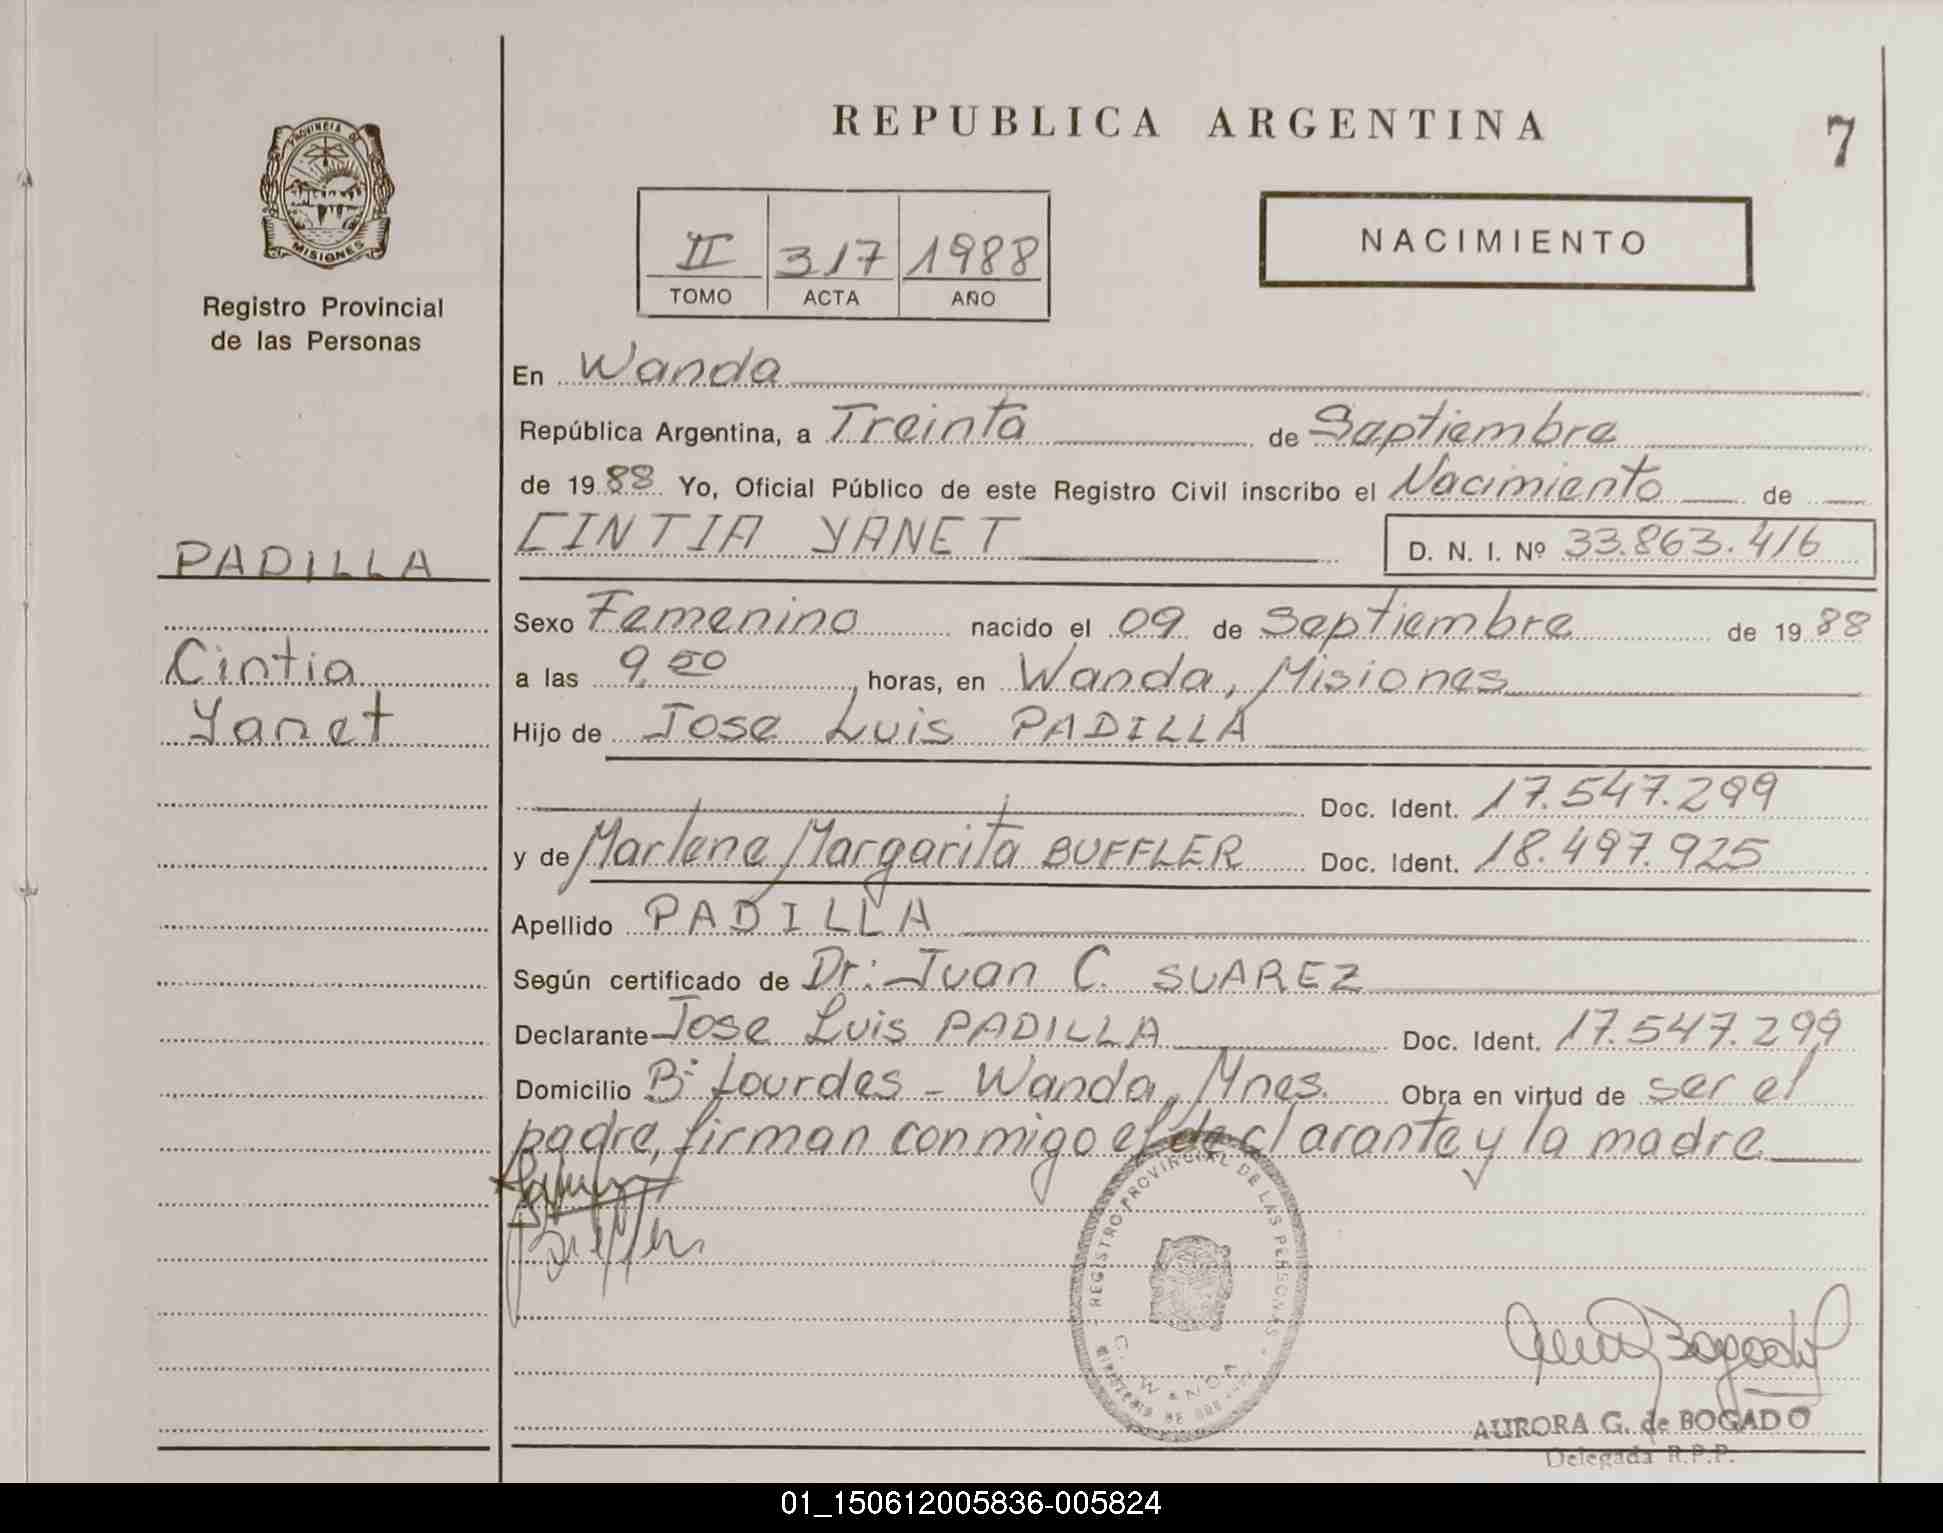 REPUBLICA ARGENTINA
7
PROVINCIA DE
MISIONES
Registro Provincial
de las Personas
II 317 1988
TOMO ACTA AÑO
NACIMIENTO
En Wanda
República Argentina, a Treinta de Septiembre
de 1988 Yo, Oficial Público de este Registro Civil inscribo el Nacimiento de
CINTIA YANET D. N. I. Nº 33.863.416
PADILLA
Cintia
Yanet
Sexo Femenino nacido el 09 de Septiembre de 1988
a las 9,50 horas, en Wanda, Misiones
Hijo de Jose Luis PADILLA
Doc. Ident. 17.547.299
y de Marlene Margarita BUFFLER Doc. Ident. 18.497.925
Apellido PADILLA
Según certificado de Dr: Juan C. SUAREZ
Declarante Jose Luis PADILLA Doc. Ident. 17.547.299
Domicilio Bº Lourdes - Wanda, Mnes. Obra en virtud de ser el
padre, firman conmigo el declarante y la madre
REGISTRO PROVINCIAL DE LAS PERSONAS
WANDA
MINISTERIO DE
AURORA G. de BOGADO
Delegada R.P.P.
01_150612005836-005824